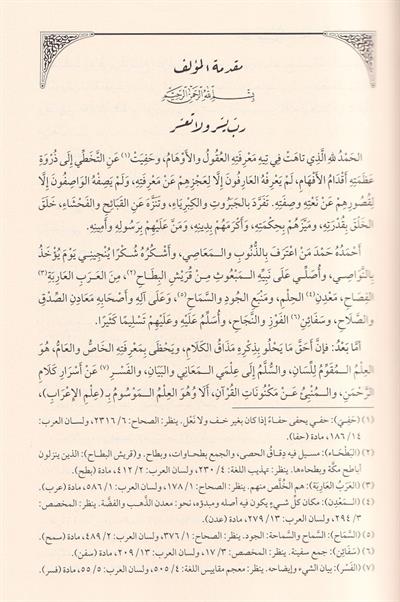 مقدمة المؤلف
بِسْمِ اللهِ الرَّحْمٰنِ الرَّحِيمِ
رب يسّر ولا تعسّر
الحَمْدُ للهِ الَّذِي تاهَتْ فِي تِيهِ مَعْرِفَتِهِ العُقُولُ وَالأَوْهَامُ، وَحَفِيَتْ(١) عَنِ التَّخَطِّي إِلَى ذُرْوَةِ
عَظَمَتِهِ أَقْدَامُ الأَفْهَامِ، لَمْ يَعْرِفْهُ العَارِفُونَ إِلَّا لِعَجْزِهِمْ عَنْ مَعْرِفَتِهِ، وَلَمْ يَصِفْهُ الوَاصِفُونَ إِلَّا
لِقُصُورِهِمْ عَنْ نَعْتِهِ وَصِفَتِهِ. تَفَرَّدَ بِالجَبَرُوتِ وَالكِبْرِيَاءِ، وَتَنَزَّهَ عَنِ القَبَائِحِ وَالفَحْشَاءِ، خَلَقَ
الخَلْقَ بِقُدْرَتِهِ، وَمَيَّزَهُمْ بِحِكْمَتِهِ، وَأَكْرَمَهُمْ بِدِينِهِ، وَمَنَّ عَلَيْهِمْ بِرَسُولِهِ وَأَمِينِهِ.
أَحْمَدُهُ حَمْدَ مَنْ اعْتَرَفَ بِالذُّنُوبِ وَالمَعَاصِي، وَأَشْكُرُهُ شُكْرًا يُنْجِينِي يَوْمَ يُؤْخَذُ
بِالنَّوَاصِي، وَأُصَلِّي عَلَى نَبِيِّهِ المَبْعُوثِ مِنْ قُرَيْشِ البِطَاحِ(٢)، مِنَ العَرَبِ العَارِبَةِ(٣)
الفِصَاحِ، مَعْدِنِ(٤) الحِلْمِ، وَمَنْبَعِ الجُودِ وَالسَّمَاحِ(٥)، وَعَلَى آلِهِ وَأَصْحَابِهِ مَعَادِنِ الصِّدْقِ
وَالصَّلَاحِ، وَسَفَائِنِ(٦) الفَوْزِ وَالنَّجَاحِ، وَأُسَلِّمُ عَلَيْهِ وَعَلَيْهِمْ تَسْلِيمًا كَثِيرًا.
أمَّا بَعْدُ: فَإِنَّ أَحَقَّ مَا يَحْلُو بِذِكْرِهِ مَذَاقُ الكَلَامِ، وَيَحْظَى بِمَعْرِفَتِهِ الخَاصُّ وَالعَامُّ، هُوَ
العِلْمُ المُقَوِّمُ لِلِّسَانِ، وَالسُّلَّمُ إِلَى عِلْمَيِ المَعَانِي وَالبَيَانِ، وَالفَسْرِ(٧) عَنْ أَسْرَارِ كَلَامِ
الرَّحْمَنِ، وَالمُنْبِئُ عَنْ مَكْنُونَاتِ القُرْآنِ، أَلَا وَهُوَ العِلْمُ المَوْسُومُ بِـ (عِلْمِ الإِعْرَابِ)،
(١) (حَفِيَ): حفي يحفى حفاءً إذا كان بغير خف ولا نَعْل. ينظر: الصحاح: ٢٣١٦/٦، ولسان العرب:
١٨٦/١٤، مادة (حفا).
(٢) (البَطْحَاء): مسيل فيه دقاق الحصى، والجمع بطحاوات، وبطاح. و(قريش البطاح): الذين ينزلون
أباطح مكَّة وبطحاءها. ينظر: تهذيب اللغة: ٢٣٠/٤، ولسان العرب: ٤١٢/٢، مادة (بطح).
(٣) (العَرَبُ العَارِبَة): هم الخُلَّص منهم. ينظر: الصحاح: ١٧٨/١، ولسان العرب: ٥٨٦/١، مادة (عرب).
(٤) (المَعْدِن): مكان كلِّ شيءٍ يكون فيه أصله ومبدؤه، نحو: معدن الذَّهب والفضَّة. ينظر: المخصص:
٢٩٤/٣، ولسان العرب: ٢٧٩/١٣، مادة (عدن).
(٥) (السَّمَاح): السَّماح والسماحة: الجود. ينظر: الصحاح: ٣٧٦/١، ولسان العرب: ٤٨٩/٢، مادة (سمح).
(٦) (سَفَائِن): جمع سفينة. ينظر: المخصص: ١٧/٣، ولسان العرب: ٢٠٩/١٣، مادة (سفن).
(٧) (الفَسْر): بيان الشيء وإيضاحه. ينظر: معجم مقاييس اللغة: ٥٠٤/٤، ولسان العرب: ٥٥/٥، مادة (فسر).